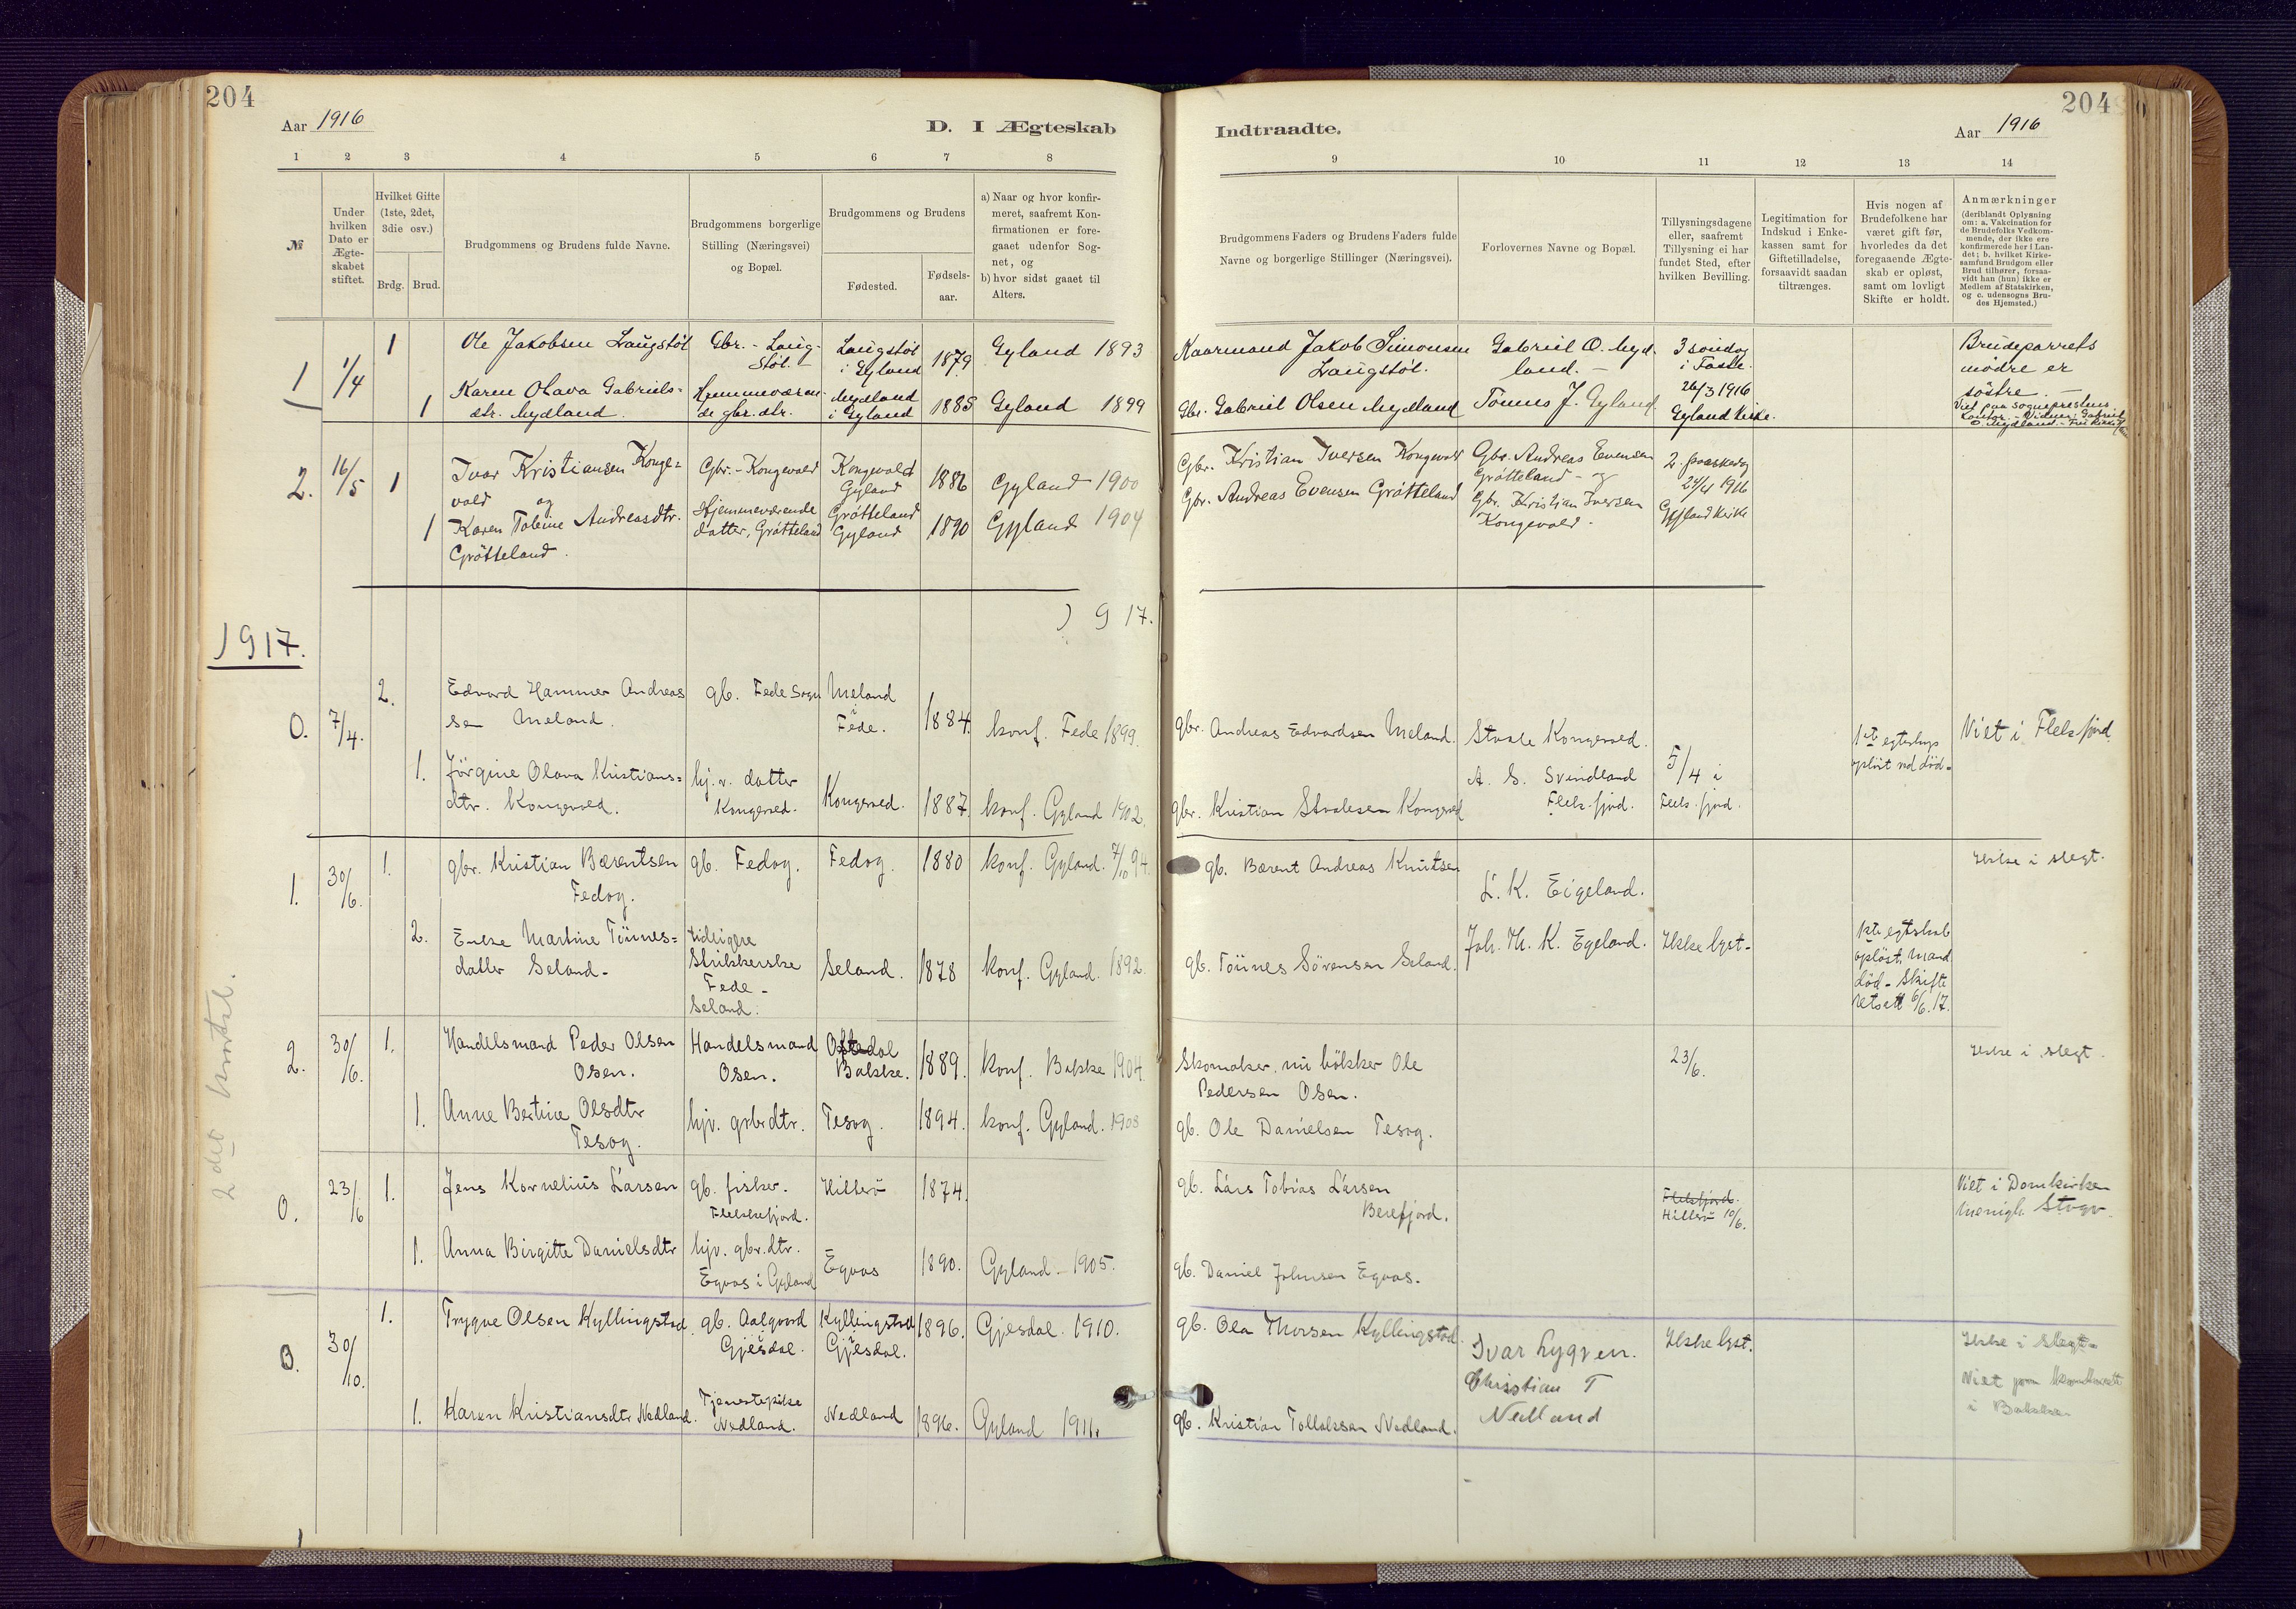 204
Aar 1916
D. I Ægteskab
1 2 3 4 5 6 7 8
№
Under hvilken Dato er Ægte-skabet stiftet.
Hvilket Gifte (1ste, 2det, 3die osv.)
Brdg. Brud.
Brudgommens og Brudens fulde Navne.
Brudgommens borgerlige Stilling (Næringsvei) og Bopæl.
Brudgommens og Brudens
Fødested.
Fødsels-aar.
a) Naar og hvor konfir-
meret, saafremt Kon-
firmationen er fore-
gaaet udenfor Sog-
net, og
b) hvor sidst gaaet til
Alters.
1 1/4
1 Ole Jakobsen Laugstøl
Gbr. - Laug-
støl. -
Laugstøl
i Gyland
1879
Gyland 1893
1 Karen Olava Gabriels-
dtr. Mydland.
Hjemmeværen-
de gbr. dtr.
Mydland
i Gyland
Gyland 1899
2. 16/5
1 Ivar Kristiansen Konge-
vold og
Gbr. - Kongevold
Kongevold
Gyland
1886
Gyland 1900
1 Karen Toleine Andreasdtr.
Grötteland.
Hjemmeværende
datter, Grötteland
Grötteland
Gyland
1890
Gyland 1904
1917.
1917.
0. 7/4.
2. Edvard Hammer Andreas
sen Meland.
gb. Fede sogn
Meland
i
Fede.
1884.
konf. Fede 1899.
1. Jörgine Olava Kristians-
dtr. Kongevold.
hj. v. datter
Kongevold.
Kongevold.
1887.
konf. Gyland 1902.
1. 30/6.
1. gbr. Kristian Bærentsen
Fedog.
gb. Fedog.
Fedog.
1880
konf. Gyland. 7/10 94.
2. Enke Martine Tönnes-
datter Seland -
tidligere
Strikkerske
Fede -
Seland.
Seland.
1878
konf. Gyland. 1892.
2det kvartal.
2. 30/6.
1. Handelsmand Peder Olsen
Osen.
Handelsmand
Osen.
Oftedal
Bakke.
1889.
konf. Bakke 1904.
1. Anne Bertine Olsdtr
Tesog.
hjv. grbrdtr.
Tesog.
1894.
konf. Gyland. 1908
0. 23/6
1. Jens Kornelius Larsen
gb. fisker.
Flekkefjord.
Hitterö
1874.
1. Anna Birgitte Danielsdtr
hjv. gbr. dtr.
Egaas i Gyland
Egaas
1890.
Gyland - 1905.
0. 30/10.
1. Trygve Olsen Kyllingstad
gb. Aalgaard
Gjesdal.
Kyllingstad
Gjesdal.
1896.
Gjesdal. 1910.
1. Karen Kristiansdtr Nedland.
Tjenestepike
Nedland.
Nedland
1896.
Gyland 1911.
204
Indtraadte.
Aar 1916
9 10 11 12 13 14
Brudgommens Faders og Brudens Faders fulde
Navne og borgerlige Stillinger (Næringsvei).
Forlovernes Navne og Bopæl.
Tillysningsdagene
eller, saafremt
Tillysning ei har
fundet Sted, efter
hvilken Bevilling.
Legitimation for
Indskud i Enke-
kassen samt for
Giftetilladelse,
forsaavidt saadan
tiltrænges.
Hvis nogen af
Brudefolkene har
været gift før,
hvorledes da det
foregaaende Ægte-
skab er opløst,
samt om lovligt
Skifte er holdt.
Anmærkninger
(deriblandt Oplysning
om: a. Vakcination for
de Brudefolks Vedkom-
mende, der ikke ere
konfirmerede her i Lan-
det; b. hvilket Kirke-
samfund Brudgom eller
Brud tilhører, forsaa-
vidt han (hun) ikke er
Medlem af Statskirken,
og c. udensogns Bru-
des Hjemsted.)
Kaarmand Jakob Simonsen
Laugstøl.
Gabriel O. Myd-
land. -
3 söndag
i Faste.
26/3 1916
Gyland Kirke.
Brudeparrets
mödre er
söstre. -
Viet paa sogneprestens
kontor. - Vidner: Gabriel
O. Mydland. -
Gbr. Gabriel Olsen Mydland
Tönnes J. Gyland.
Gbr. Kristian Iversen Kongevold
Gbr. Andreas Evensen
Grötteland - og
Gbr. Kristian Iversen
Kongevold.
2. paaskedag
24/4 1916
Gyland kirke
Gbr. Andreas Evensen Grötteland
gbr. Andreas Edvardsen Meland.
Staale Kongevold.
A. S. Svindland
Flekkefjord.
5/4 i
Flekkefjord.
1ste egteskap
opløst ved död -
Viet i Flekkefjord.
gbr. Kristian Staalesen Kongevold
gb. Bærent Andreas Knutsen
L. K. Eigeland.
Joh. Th. K. Egeland.
Ikke lyst -
1ste egteskab
opløst, mand
död - Skifte
retsatt 6/6. 17.
Ikke i slegt.
gb. Tönnes Sörensen Seland.
Skomaker, nu bökker Ole
Pedersen Osen.
23/6.
Ikke i slegt.
gb. Ole Danielsen Tesog.
gb. Lars Tobias Larsen
Berefjord.
Flekkefjord.
Hitterö 10/6.
Viet i Domkirken
menigh. Stvgr.
gb. Daniel Johnsen Egaas.
gb. Ola Thorsen Kyllingstad.
Ivar Lygren.
Christian T
Nedland
Ikke lyst.
Ikke i slegt -
Viet paa kontoret
i Bakke
gb. Kristian Tollaksen Nedland.